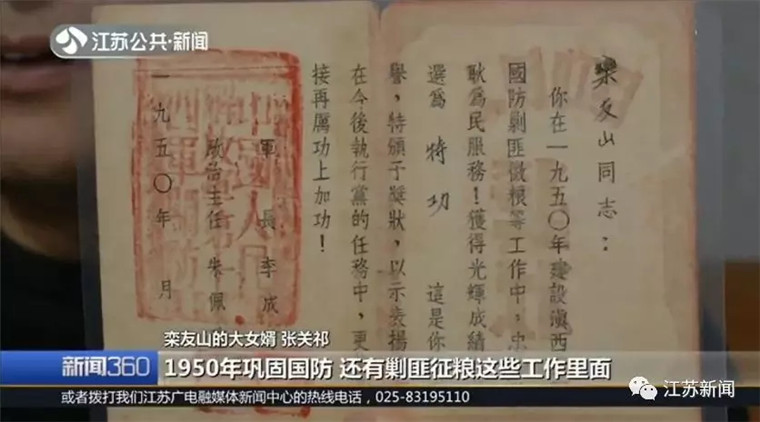 江苏公共·新闻
欒友山同志：
你在一九五〇年建設滇西
國防剿匪徵粮等工作中，忠
耿爲民服務！獲得光輝成績
選爲 特功 這是你
譽，特頒予獎狀，以示表揚
在今後執行黨的任務中，更
接再厲功上加功！
軍 長 李成
政治主任 朱佩
一九五〇年 月
栾友山的大女婿 张关祁
新闻360
1950年巩固国防 还有剿匪征粮这些工作里面
江苏新闻
或者拨打我们江苏广电融媒体新闻中心的热线电话，025-83195110